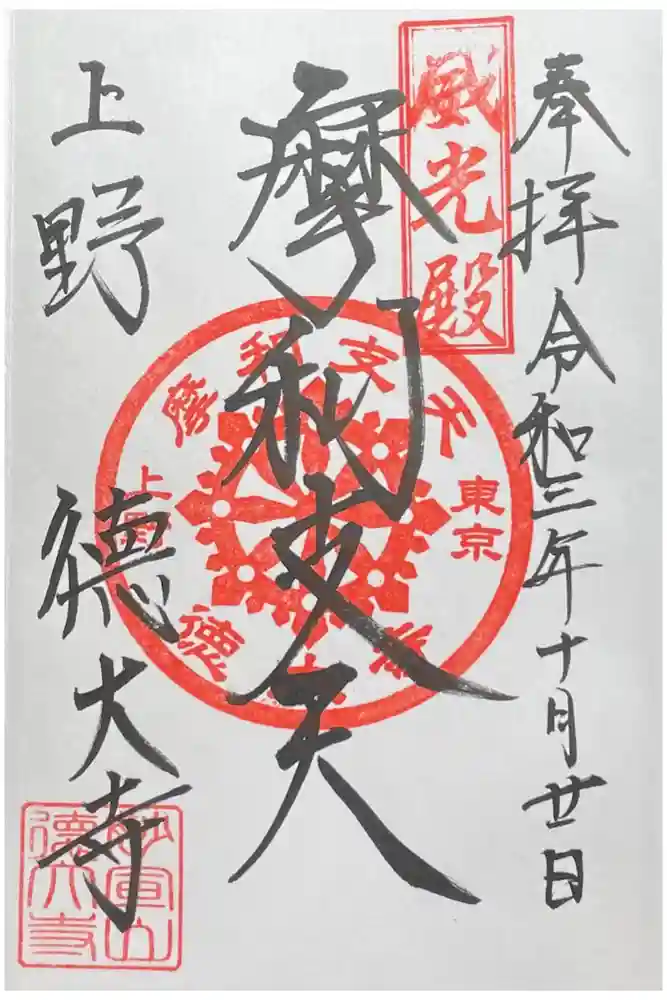 奉拝 令和三年十月廿日
威光殿
摩利支天
摩利支天
東京
上野
徳大寺
上野 徳大寺